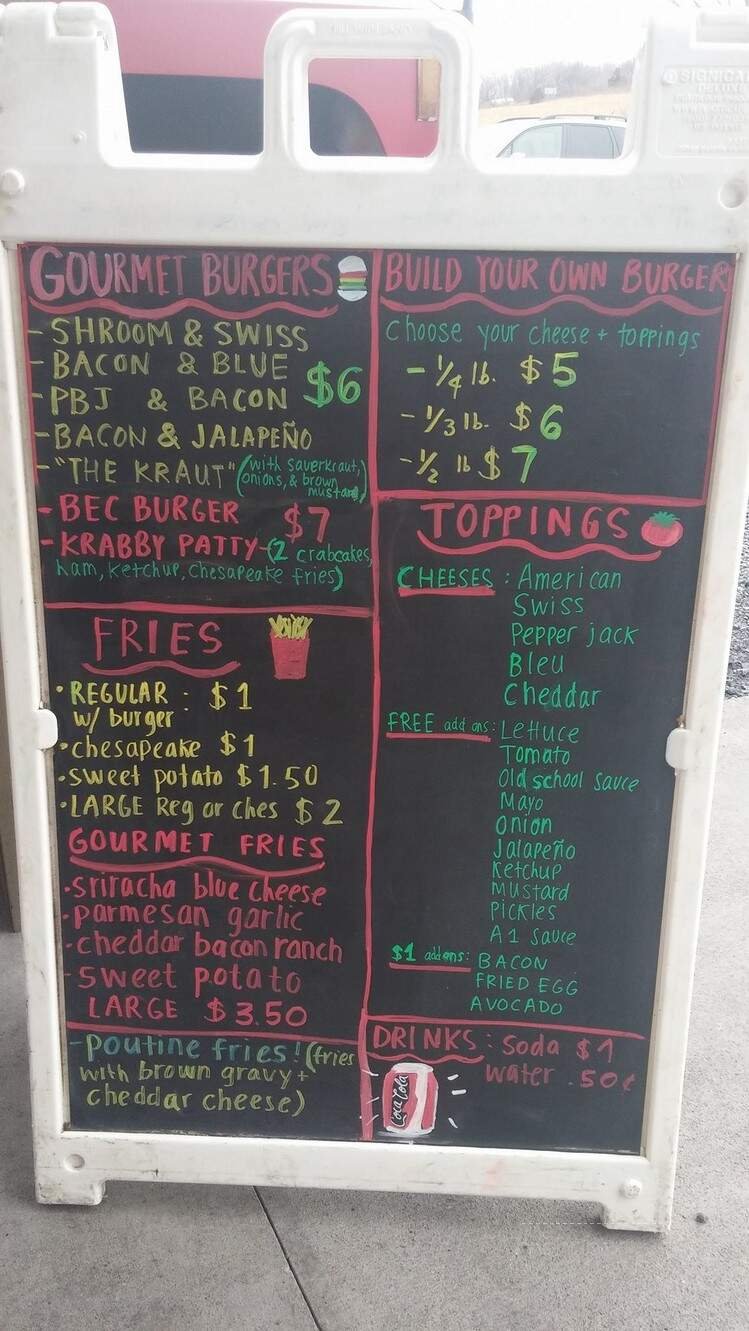 GOURMET BURGERS
- SHROOM & SWISS
- BACON & BLUE
$6
- PBJ & BACON
- BACON & JALAPEÑO
- "THE KRAUT" (with sauerkraut,
onions, & brown
mustard)
- BEC BURGER $7
- KRABBY PATTY - (2 crabcakes,
ham, ketchup, Chesapeake fries)
FRIES
• REGULAR : $1
w/ burger
• chesapeake $1
• sweet potato $1.50
• LARGE Reg or ches $2
GOURMET FRIES
• sriracha blue cheese
• parmesan garlic
• cheddar bacon ranch
- sweet potato
LARGE $3.50
- poutine fries! (fries
with brown gravy +
cheddar cheese)
BUILD YOUR OWN BURGER
Choose your cheese + toppings
- 1/4 lb. $5
- 1/3 lb. $6
- 1/2 lb $7
TOPPINGS
CHEESES : American
Swiss
Pepper jack
Bleu
Cheddar
FREE add ons: Lettuce
Tomato
Old school sauce
Mayo
Onion
Jalapeño
Ketchup
Mustard
Pickles
A1 Sauce
$1 add ons: BACON
FRIED EGG
AVOCADO
DRINKS : Soda $1
water .50¢
Coca Cola
SIGNICADE
DELUXE